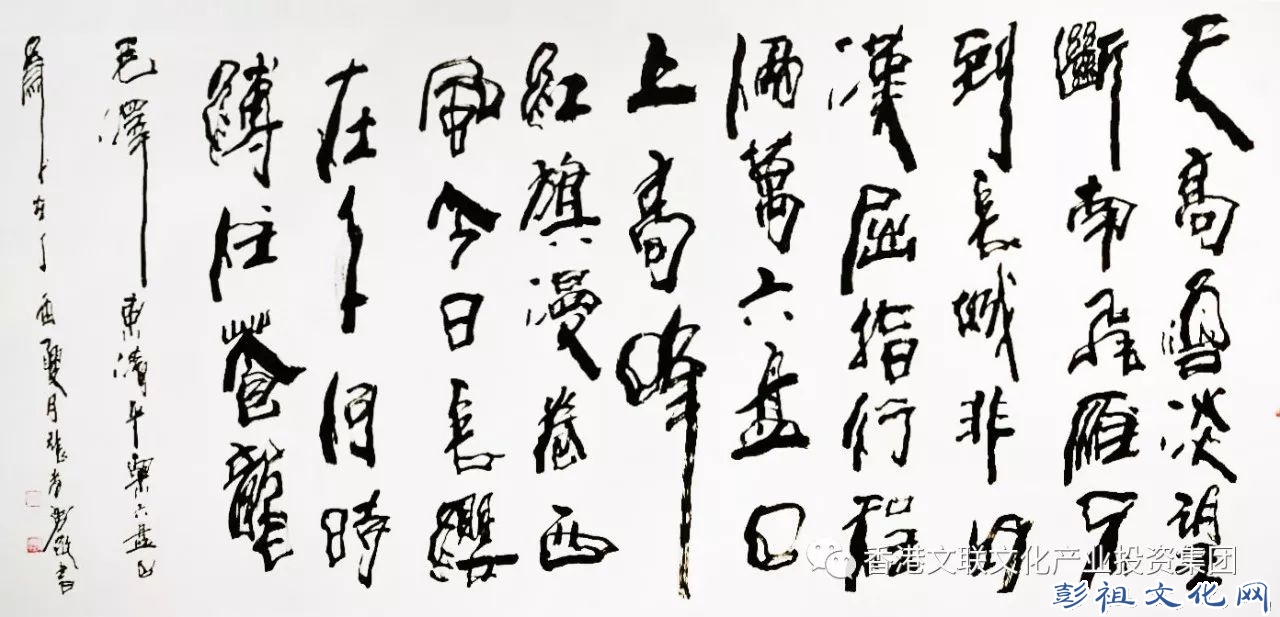 天高雲淡望
斷南飛雁不
到長城非好
漢屈指行程
萬六盤山
上高峰
紅旗漫卷西
風今日長纓
在手何時
縛住蒼龍
毛澤東清平樂六盤山
在丁酉夏月張書
香港文联文化产业投资集团
彭祖文化网